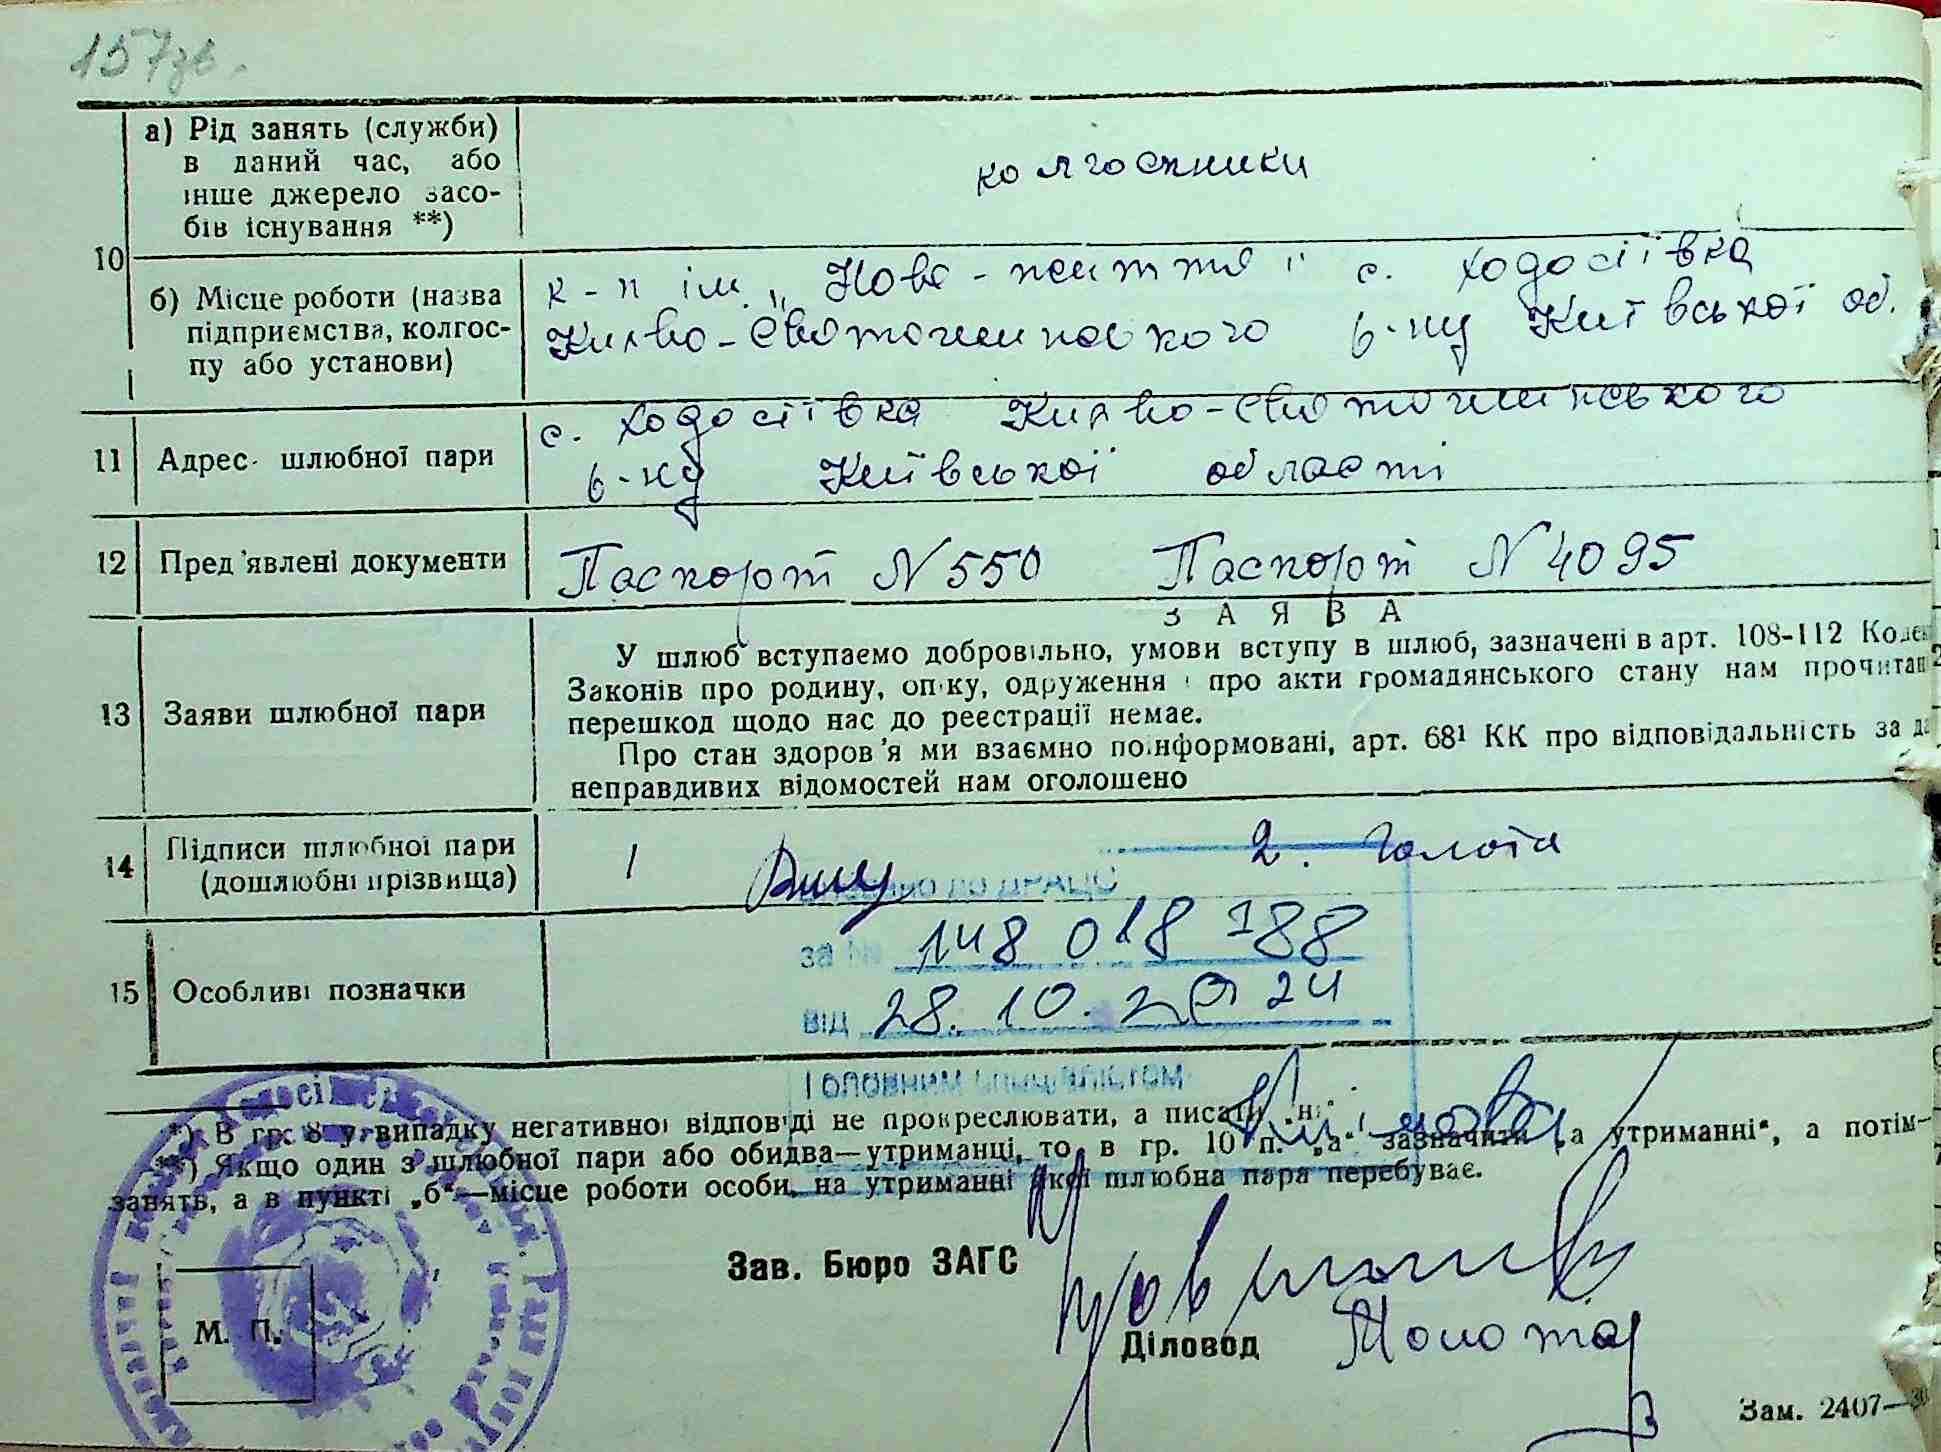 157зв.
10
а) Рід занять (служби)
в даний час, або
інше джерело засо-
бів існування **)
колгоспники
б) Місце роботи (назва
підприємства, колгос-
пу або установи)
к-п ім. „Нове-життя" с. Ходосіївка
Києво-Святошинського р-ну Київської об.
11 Адрес шлюбної пари
с. Ходосіївка Києво-Святошинського
р-ну Київської області
12 Пред'явлені документи
Паспорт N 550 Паспорт N 4095
13 Заяви шлюбної пари
ЗАЯВА
У шлюб вступаємо добровільно, умови вступу в шлюб, зазначені в арт. 108-112 Коде
Законів про родину, опіку, одруження і про акти громадянського стану нам прочитан
перешкод щодо нас до реєстрації немає.
Про стан здоров'я ми взаємно поінформовані, арт. 68¹ КК про відповідальність за да
неправдивих відомостей нам оголошено
14 Підписи шлюбної пари
(дошлюбні прізвища)
1 2. Голота
до ДРАЦС
15 Особливі позначки
за № 148 018 788
від 28.10.2024
Головним спеціалістом
*) В гр. 8 у випадку негативної відповіді не прокреслювати, а писати „ні"
**) Якщо один з шлюбної пари або обидва—утриманці, то в гр. 10 п. „а" зазначити „а утриманні", а потім—
занять, а в пункті „б"—місце роботи особи, на утриманні якої шлюбна пара перебуває.
Зав. Бюро ЗАГС
М. П.
Діловод
Зам. 2407—30